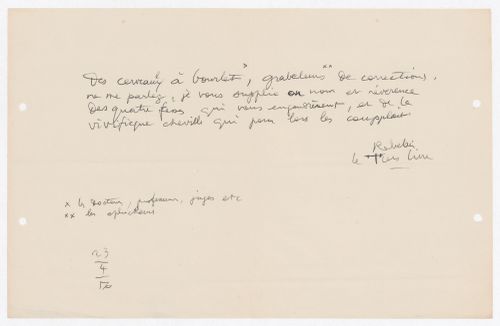 Des cerveaux à bourlet *, grabeleurs ** de corrections,
ne me parlez, je vous supplie on nom et révérence
des quatre fesses qui vous engendrèrent, et de la
vivifique cheville qui pour lors les coupploit
Rabelais
le Tiers Livre
* les Docteurs, professeurs, juges etc
** les éplucheurs
23
4
50